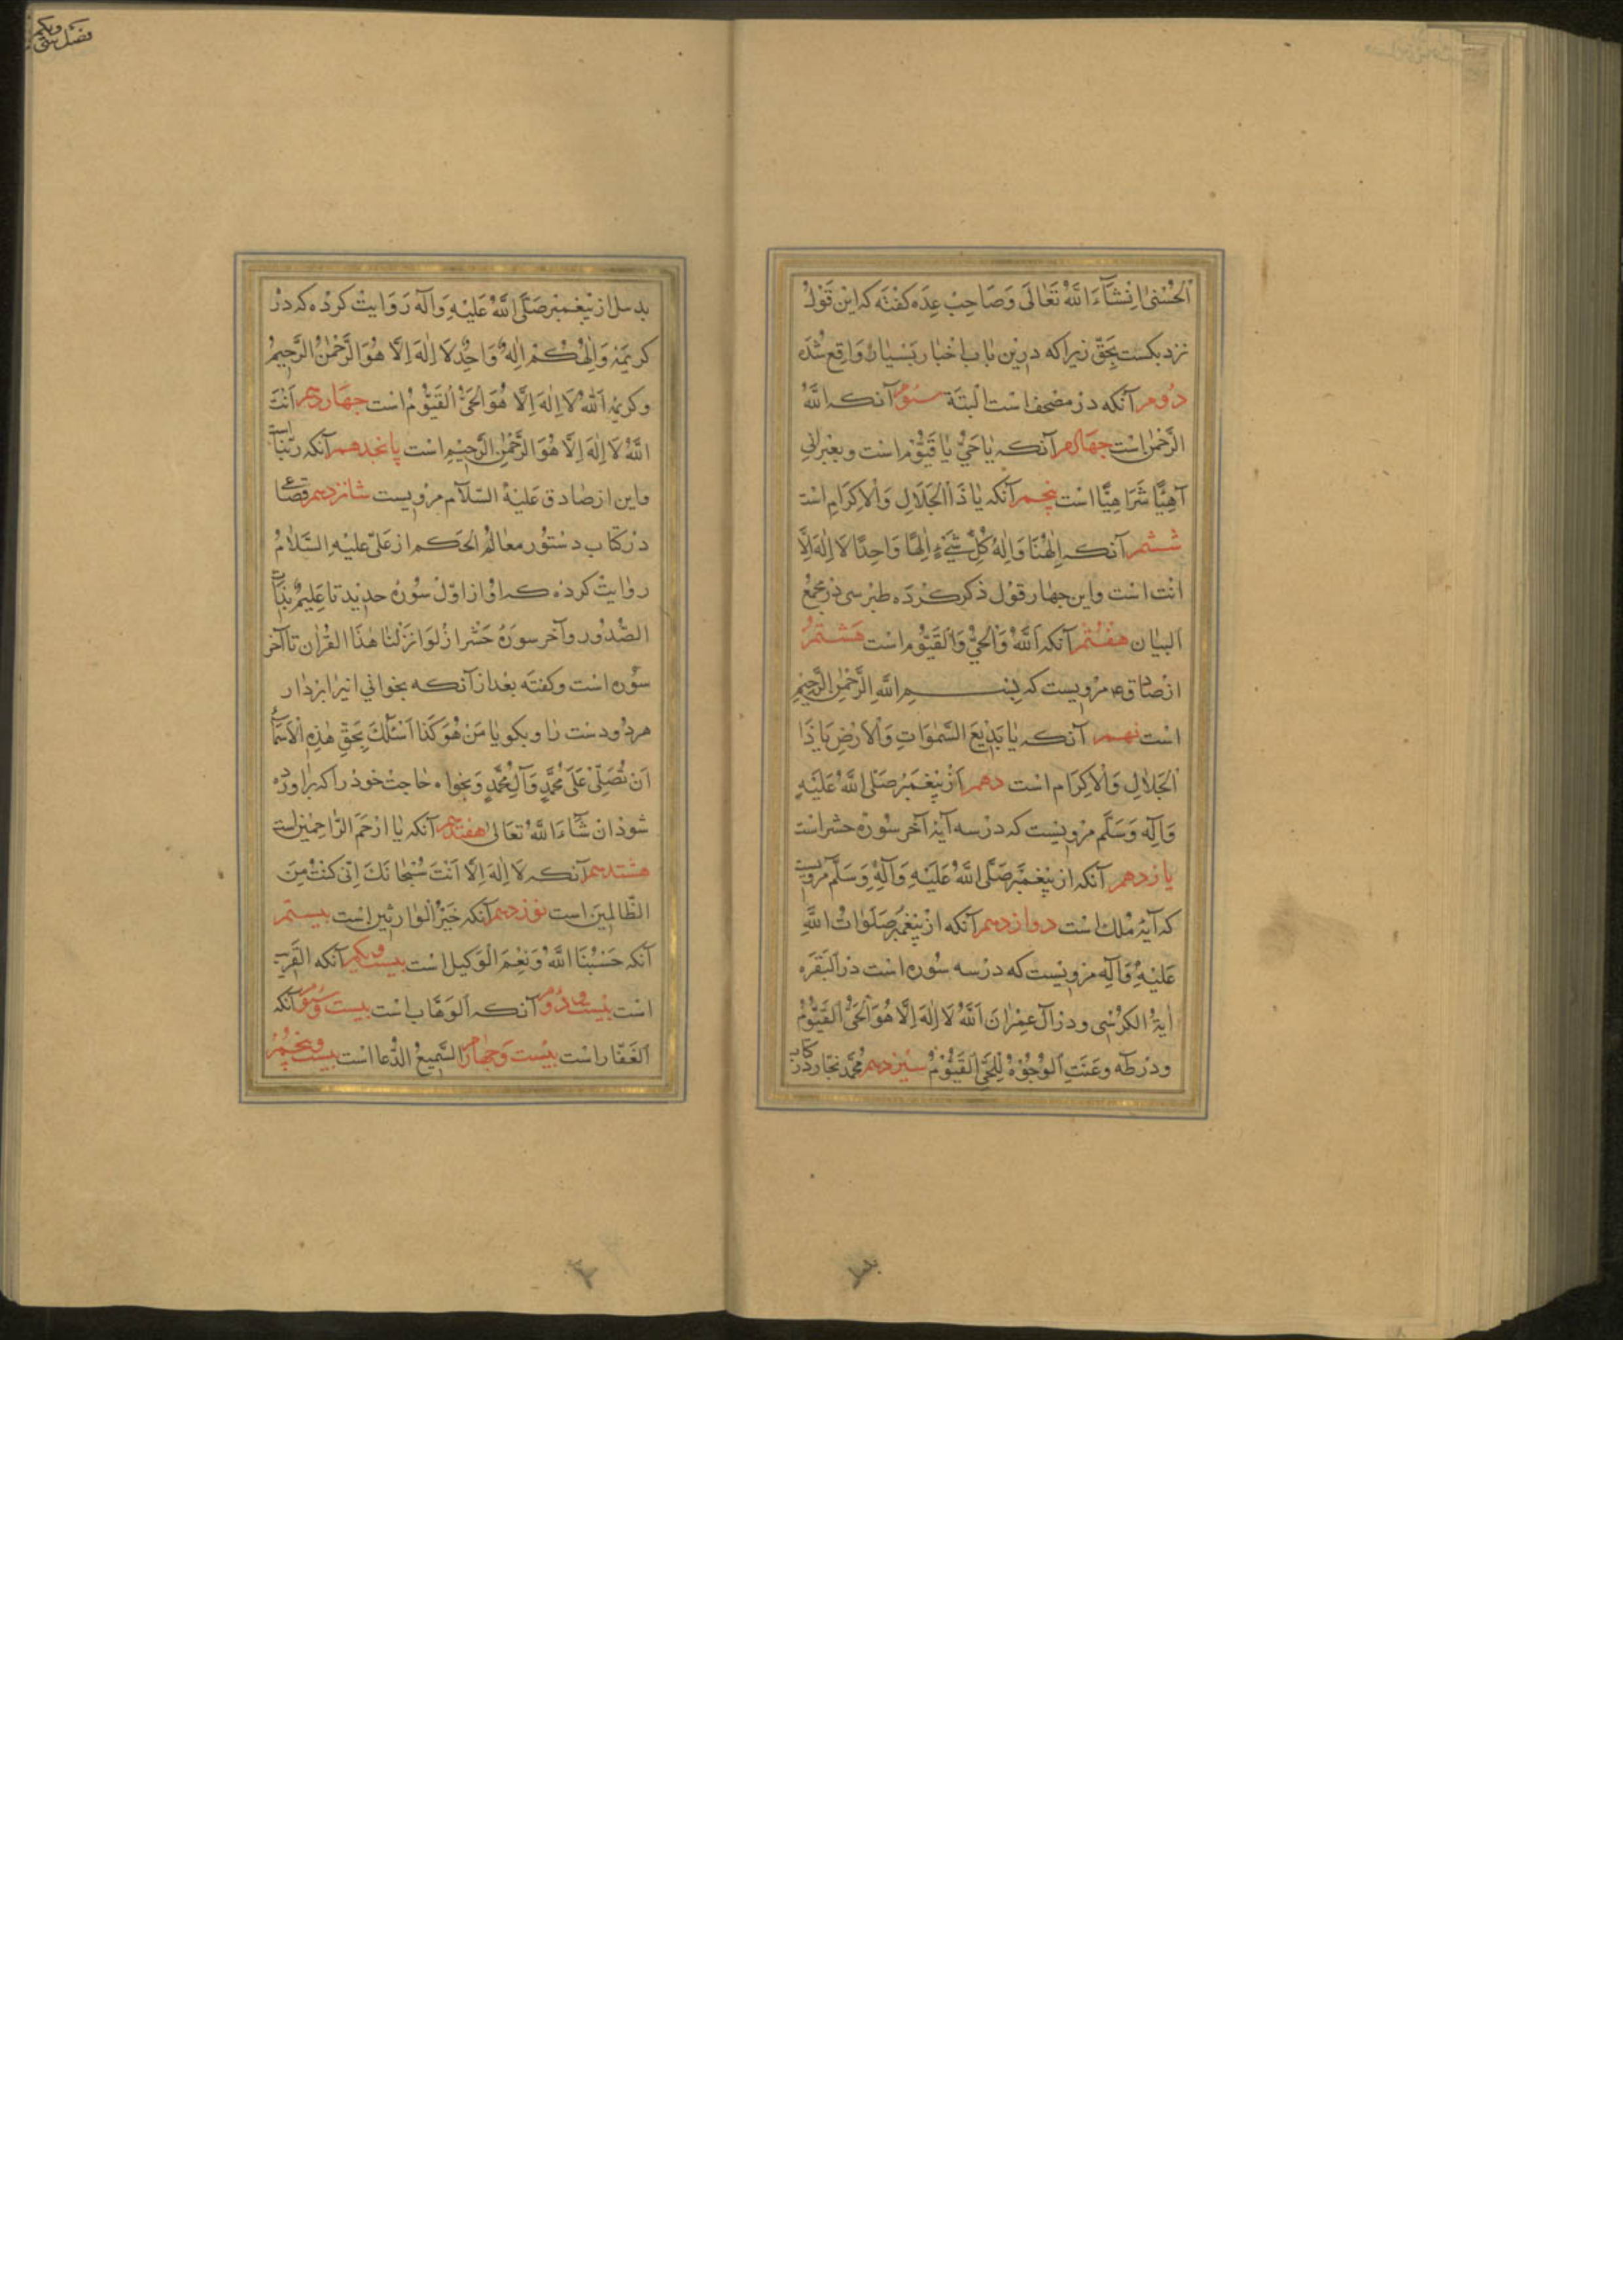 الحُسْنیٰ اِنْشَآءَ اللّٰهُ تَعٰالَی وَصَاحِبْ عِدَه کفتَه که این قَوْلْ
نزدیکست بِحَقّ زیرا که درین باب اخبار بَسْیار وَاقِع شُدَه
دُوم آنکه در مصحف است البتَة سوُم آنکه اللّٰهُ
الرَّحْمٰن است چهارم آنکه یٰا حَیُّ یٰا قَیُّوم است و بعبرانی
آهِیًّا شَرَاهِیًّا است پنجم آنکه یٰا ذَا الْجَلَالِ وَالْاِکرَامِ است
ششم آنکه اِلٰهَنَا وَاِلٰهَ کُلِّ شَیْءٍ اِلٰهًا وَاحِدًا لَا اِلٰهَ اِلَّا
انت است و این چهار قول ذکر کرده طبرسی در مجمع
البیان هَفْتُم آنکه اَللّٰهُ وَالْحَیُّ وَالْقَیُّوم است هَشتمْ
از صادق ع مرویست که بِسْمِ اللّٰهِ الرَّحْمٰنِ الرَّحِیْمِ
است نهم آنکه یٰا بَدِیْعَ السَّمٰوَاتِ وَالْاَرْضِ یَا ذَا
الْجَلَالِ وَالْاِکرَام است دهم از پیغمبر صَلَّی اللّٰهُ عَلَیْهِ
وَآلِهِ وَسَلَّم مرویست که در سه آیهٔ آخر سُورَه حشر است
یازدهم آنکه از پیغمبر صَلَّی اللّٰهُ عَلَیْهِ وَآلِهِ وَسَلَّم مرویست
که آیهٔ مُلک است دوازدهم آنکه از پیغمبر صَلَوٰاتُ اللّٰهِ
عَلَیْهِ وَآلِهِ مرویست که در سه سُوره است در البَقَرَه
اٰیَةُ الکُرْسِی و در آل عِمْرٰان اَللّٰهُ لَا اِلٰهَ اِلَّا هُوَ الْحَیُّ الْقَیُّوْمُ
و در طٰه وَعَنَتِ الْوُجُوْهُ لِلْحَیِّ الْقَیُّوْمْ سیزدهم محمّد نجّار در کتاب
بدسل
بدسل از پیغمبر صَلَّی اللّٰهُ عَلَیْهِ وَآلَه رَوَایت کرده که در
کریمَهٔ وَاِلٰهُکُمْ اِلٰهٌ وَاحِدٌ لَا اِلٰهَ اِلَّا هُوَ الرَّحْمٰنُ الرَّحِیمُ
و کریمهٔ اَللّٰهُ لَا اِلٰهَ اِلَّا هُوَ الْحَیُّ الْقَیُّوْمُ است چهاردهم اَنْتَ
اللّٰهُ لَا اِلٰهَ اِلَّا هُوَ الرَّحْمٰنِ الرَّحِیْمِ است پانجدهم آنکه ربّنا است
و این از صٰادق عَلَیْهُ السَّلَام مرویست شانزدهم قضاعی
در کتاب دستُور معٰالم الحَکم از علیّ علیْهِ السَّلَامُ
روایت کرده که او از اوّل سُورهٔ حدید تا عَلِیمٌ بِذَاتِ
الصُّدُور و آخر سورَهٔ حَشْر از لَوْ اَنْزَلْنَا هٰذَا الْقُرْاٰن تا آخر
سُوره است و کفته بعد از آنکه بخوانی اینرا بردار
هر دُو دست را و بکو یٰا مَنْ هُوَ کَذَا اَسْئَلُکَ بِحَقِّ هٰذِهِ الْاَسْمَآءِ
اَنْ تُصَلِّیَ عَلَی مُحَمَّدٍ وَآلِ مُحَمَّدٍ و بخواه حٰاجت خود را که براورده
شود ان شَآءَ اللّٰهُ تعَالیٰ هفتدهم آنکه یٰا ارْحَمَ الرَّاحِمِیْن است
هشتدهم آنکه لَا اِلٰهَ اِلَّا اَنْتَ سُبْحٰانَکَ اِنِّی کُنْتُ مِنَ
الظَّالِمِیْنَ است نوزدهم آنکه خَیْرُ الْوٰارِثِین است بیستم
آنکه حَسْبُنَا اللّٰهُ وَنِعْمَ الْوَکیل است بیست و یکم آنکه القَریب
است بیست و دُوم آنکه اَلوَهَّاب است بیست و سوُم آنکه
اَلْغَفَّار است بیست وَ چهارم السَّمِیعُ الدُّعا است بیست و پنجم
فصل سی و یکم